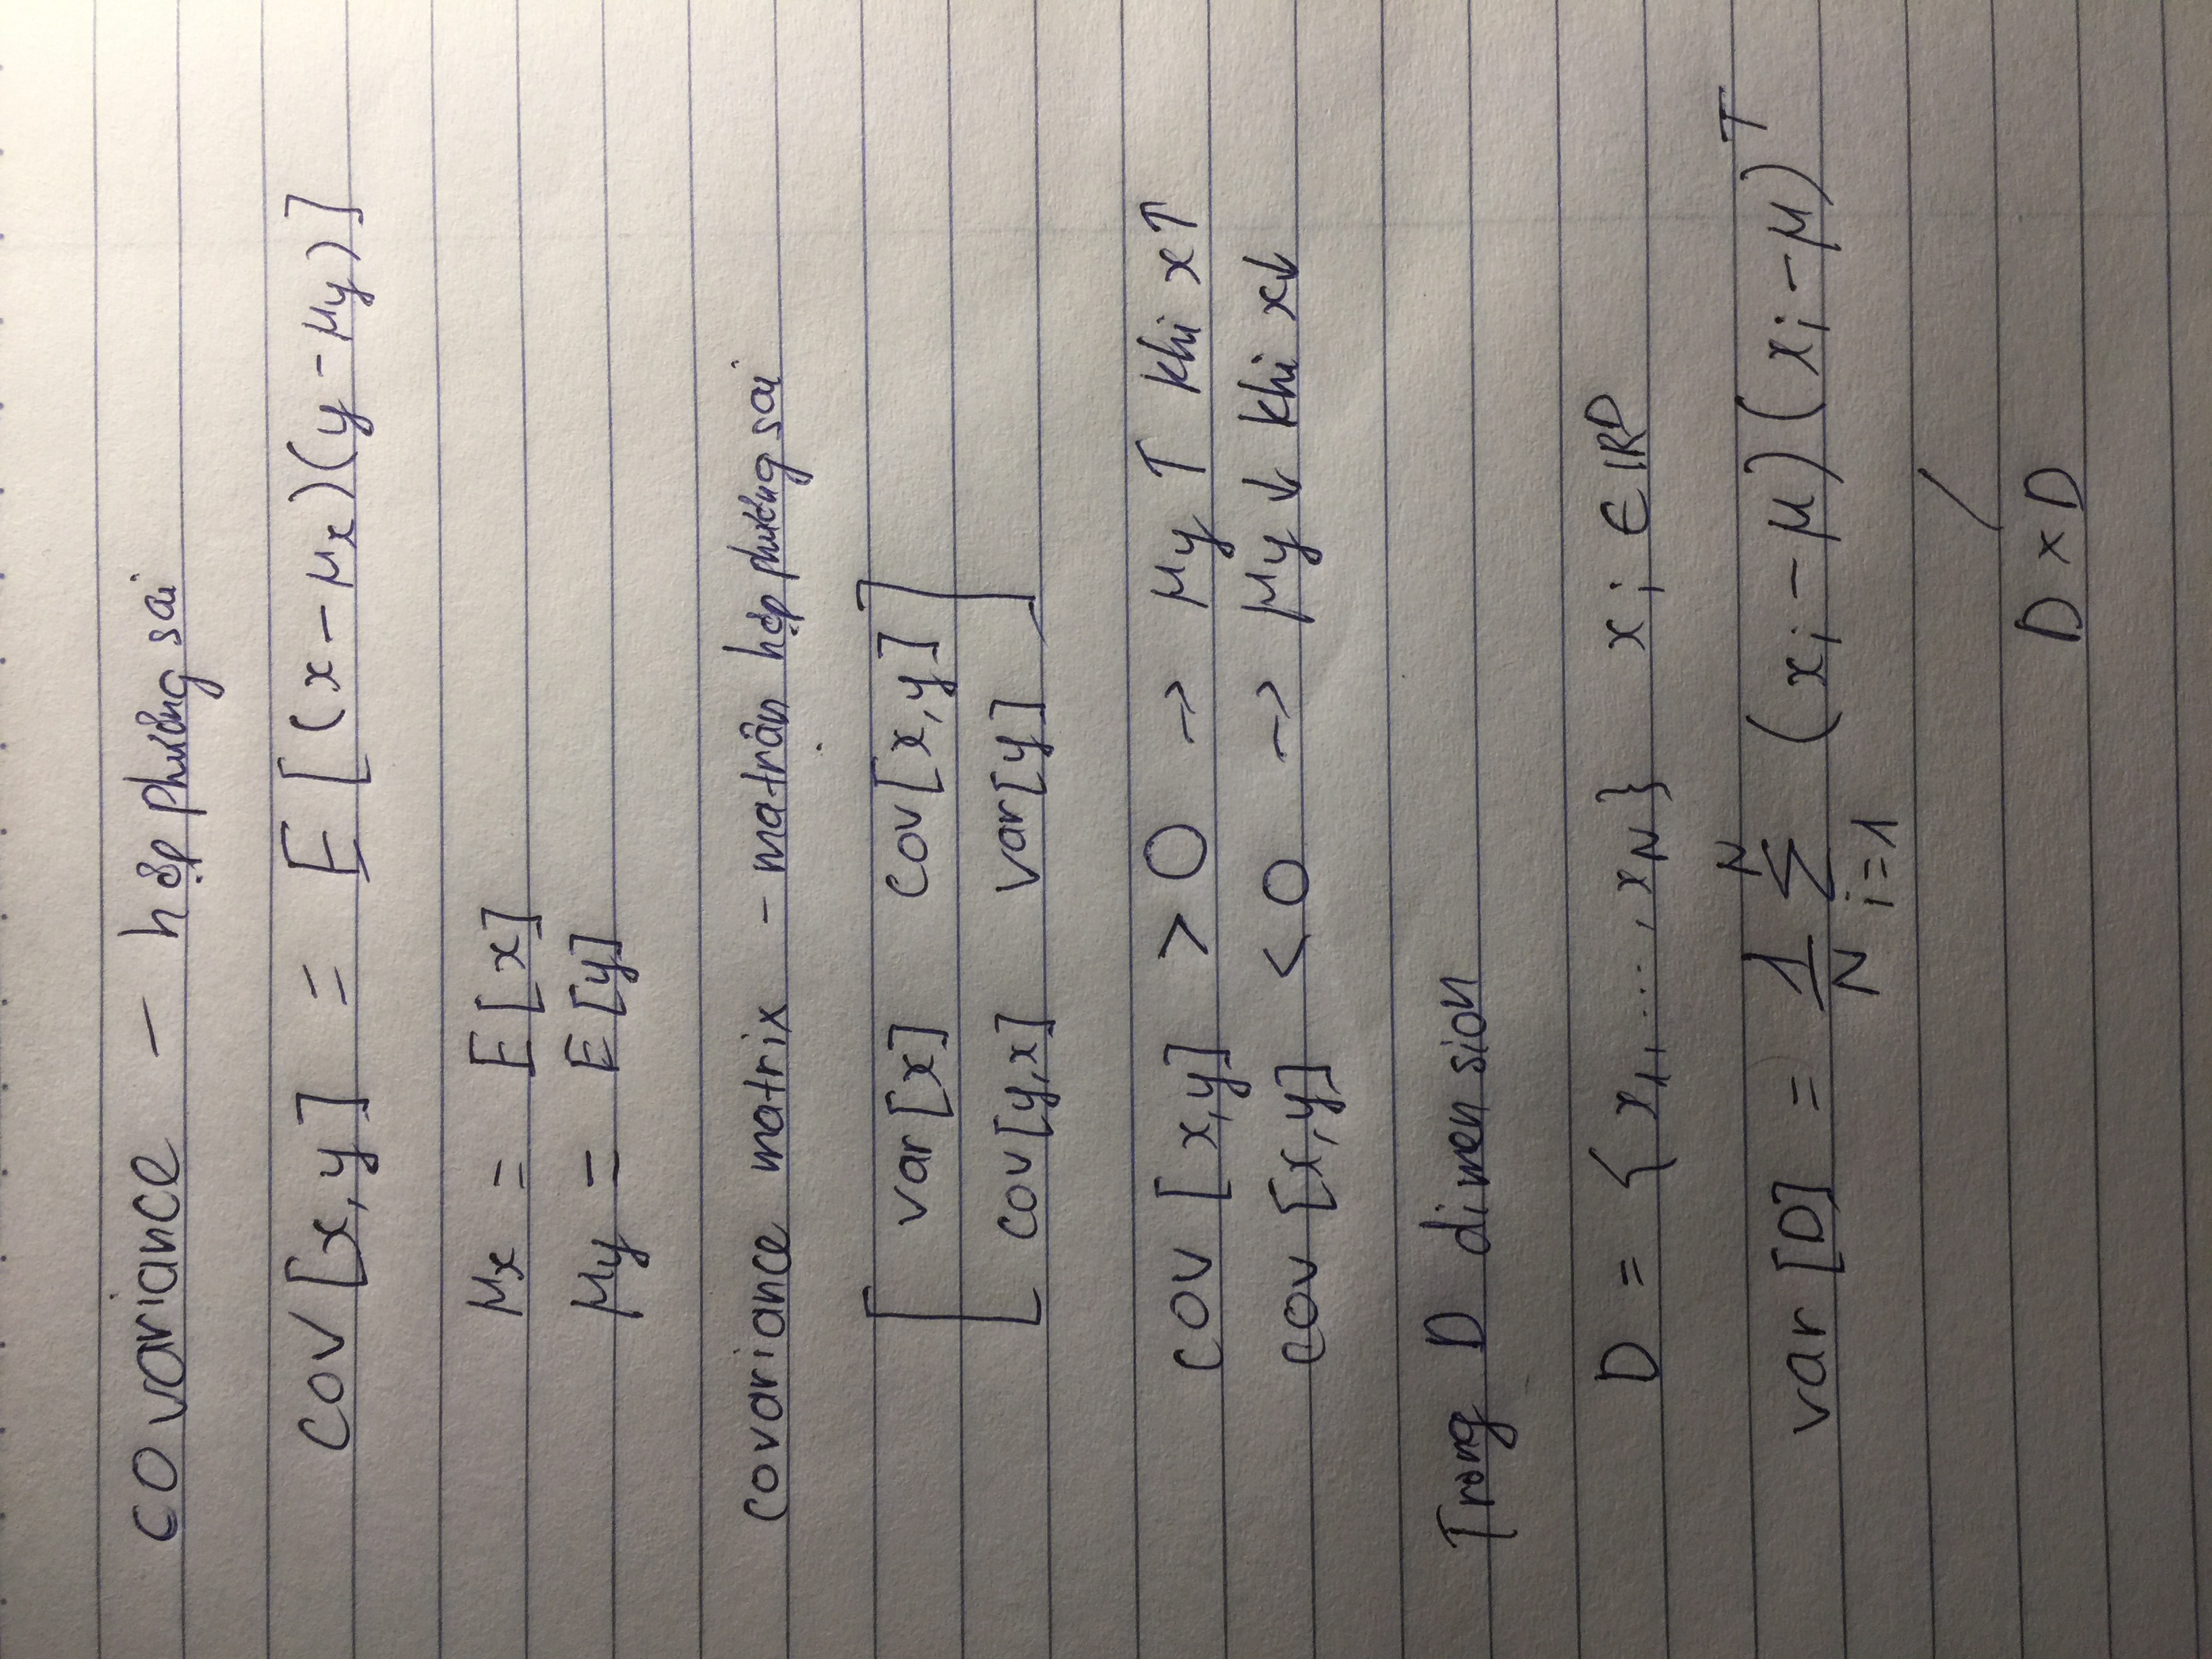 covariance – hợp phương sai
cov [x,y] = E [(x - μx)(y - μy)]
μx = E[x]
μy = E[y]
covariance matrix - ma trận hợp phương sai
[ var[x] cov[x,y]
cov[y,x] var[y] ]
cov [x,y] > 0 → μy ↑ khi x↑
cov [x,y] < 0 → μy ↓ khi x↓
Trong D dimension
D = { x₁, ..., x_N } xᵢ ∈ ℝᴰ
var [D] = 1/N Σ_{i=1}^{N} (xᵢ - μ)(xᵢ - μ)ᵀ
D × D